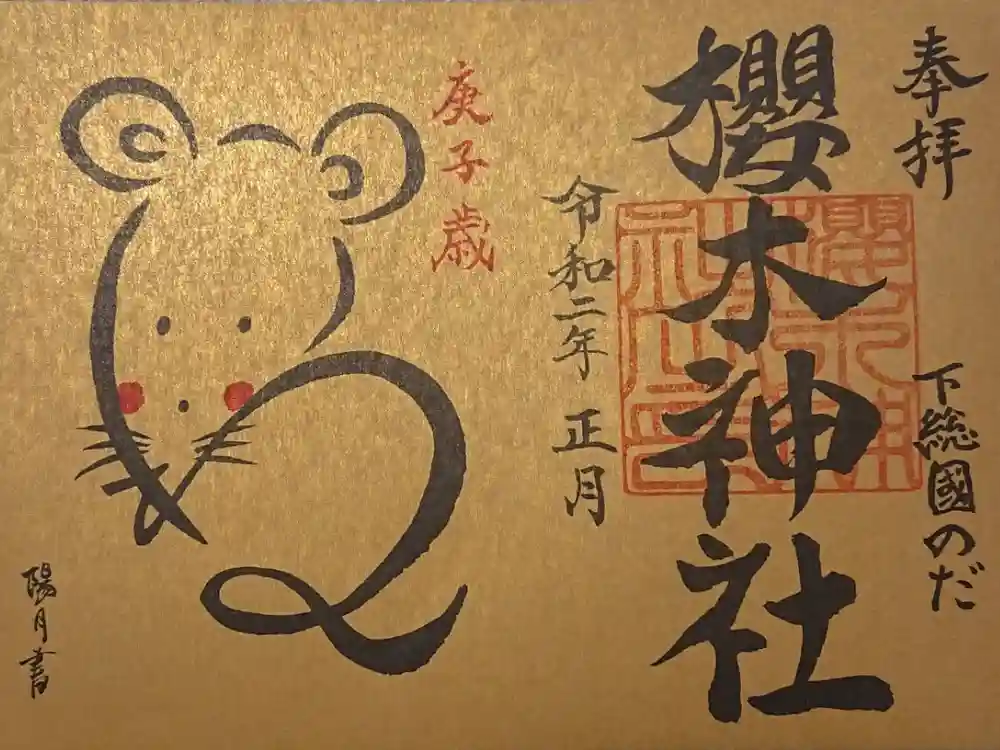 奉拝
下總國のだ
櫻木神社
令和二年 正月
庚子歳
陽月書